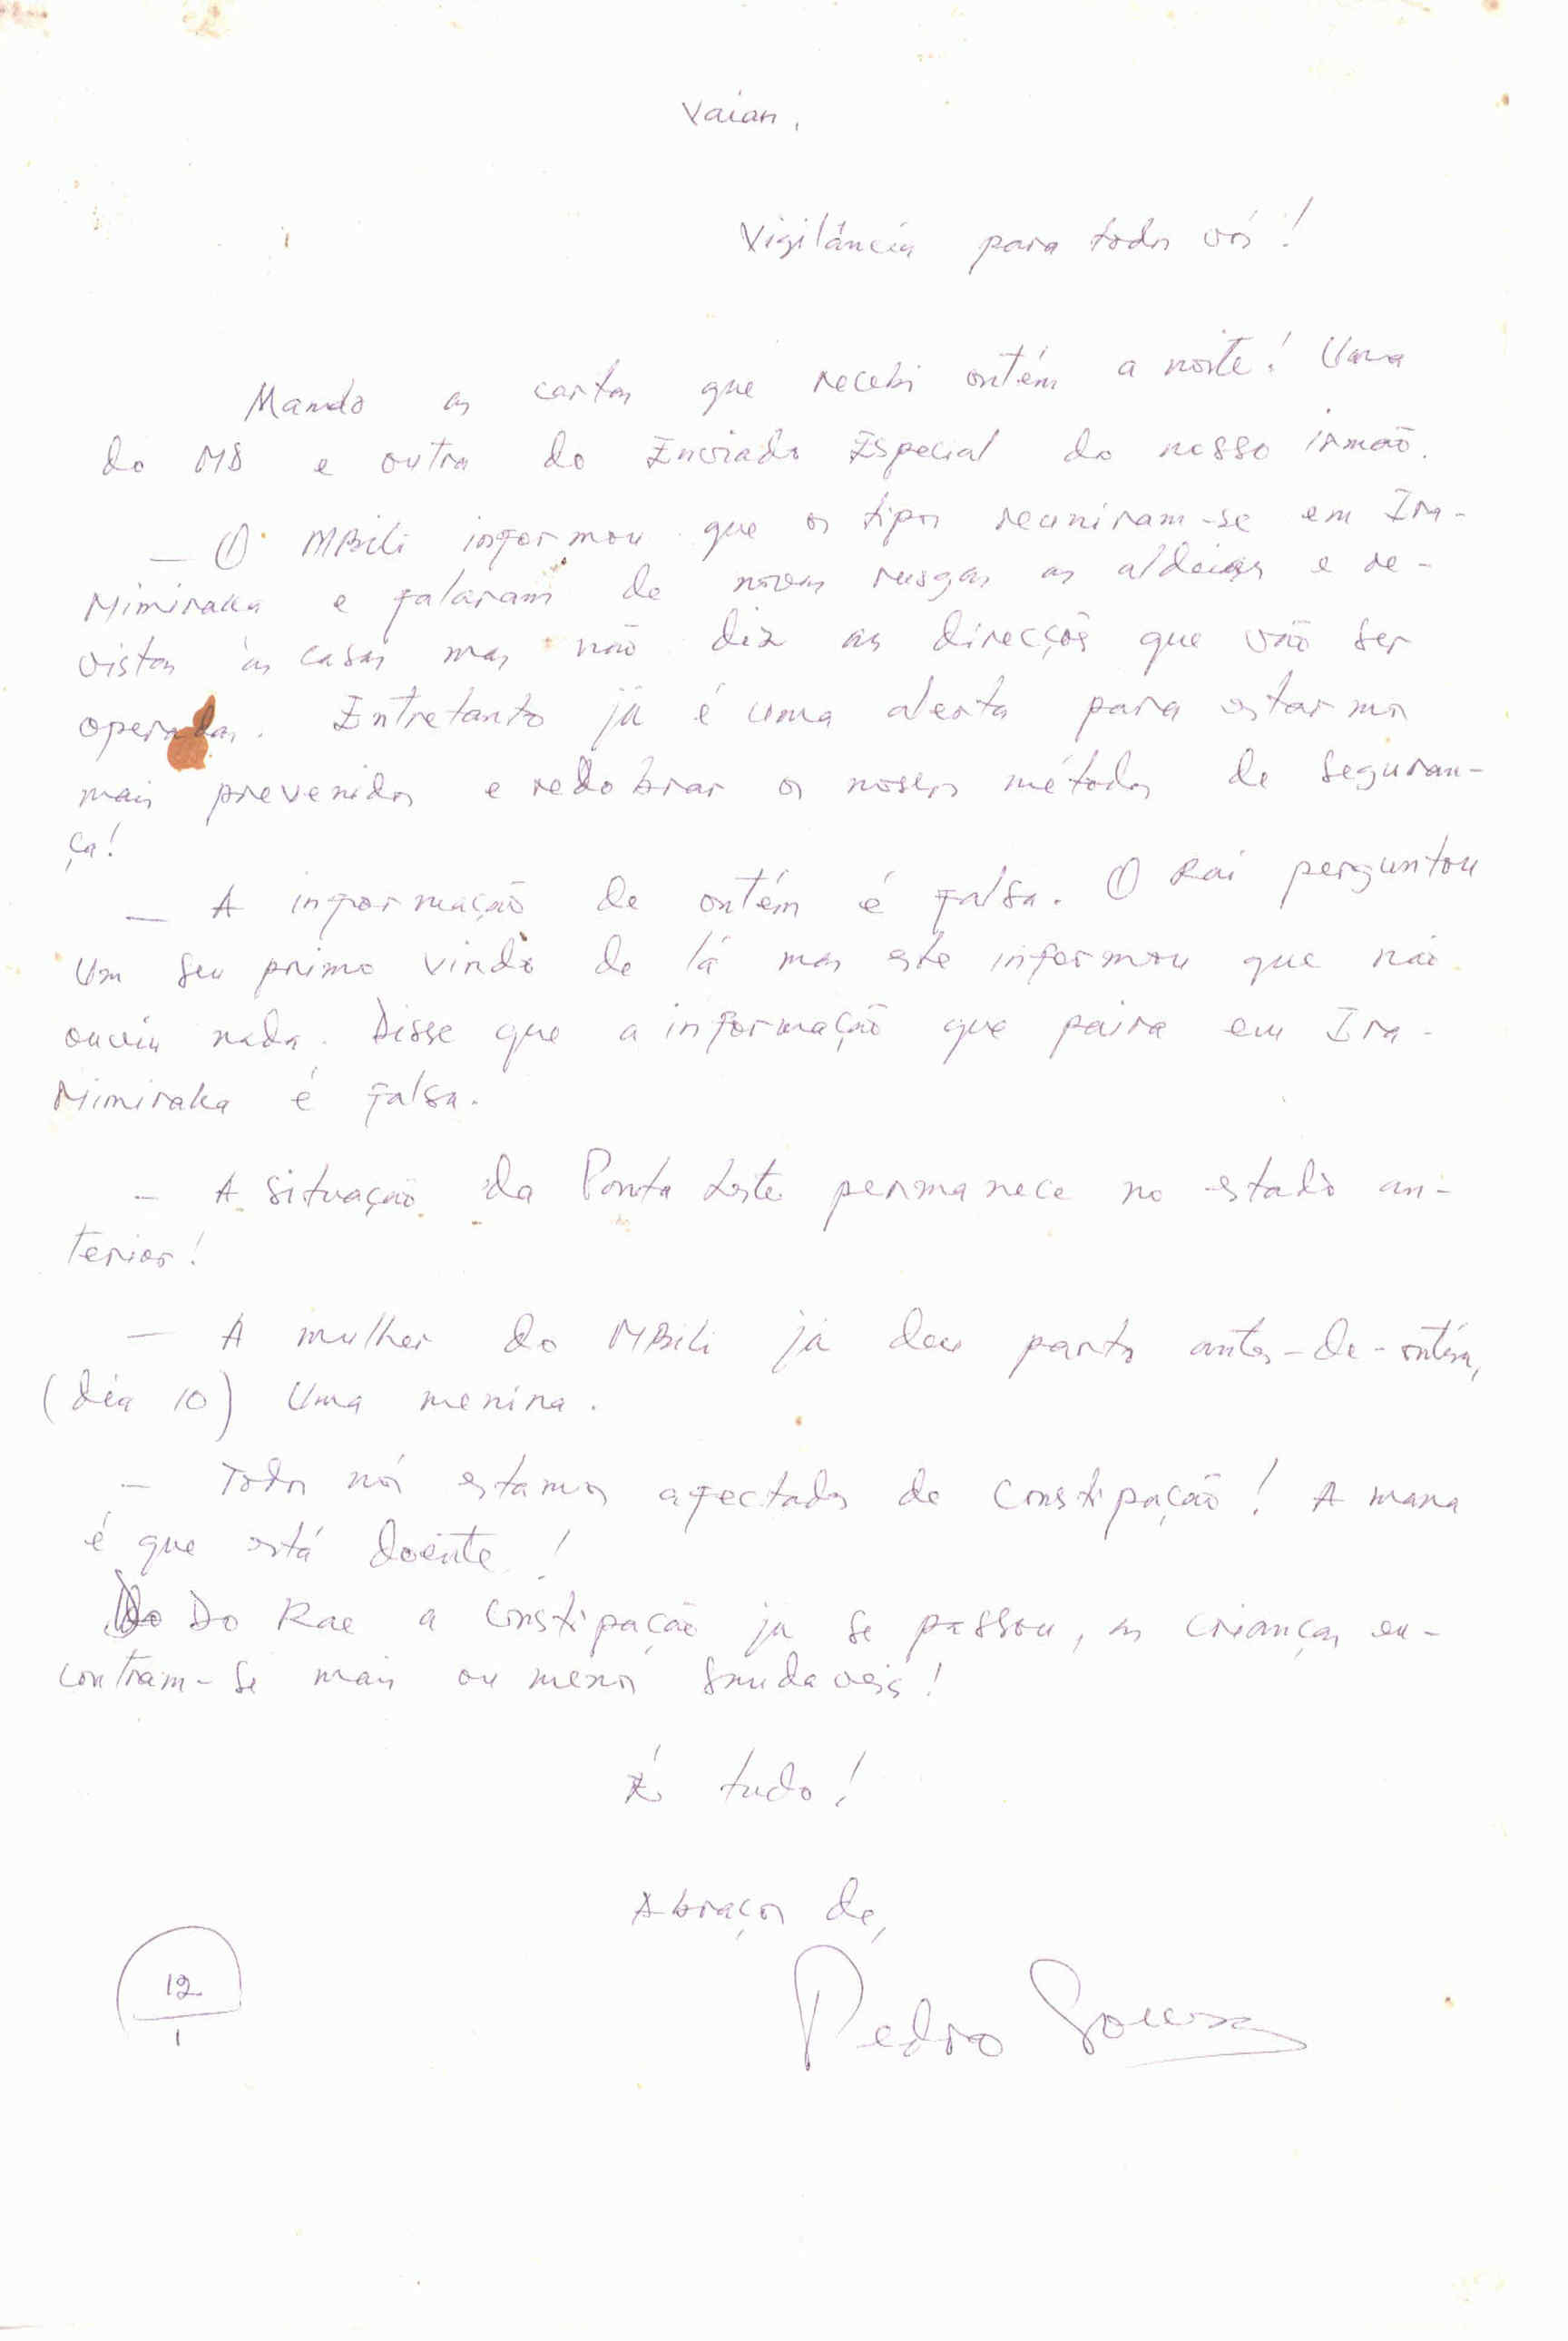 Vaian,
Vigilância para todos vós!
Mando as cartas que recebi ontém a noite! Uma
do M8 e outra do Enviado Especial do nosso irmão.
— O MBili informou que os tipos reuniram-se em Ira-
Mimiraka e falaram de novas rusgas as aldeias e re-
vistas às casas mas não diz as direcções que vão ser
operadas. Entretanto já é uma alerta para estarmos
mais prevenidos e redobrar os nossos métodos de seguran-
ça!
— A informação de ontém é falsa. O Rai perguntou
um seu primo vindo de lá mas este informou que não
ouviu nada. Disse que a informação que paira em Ira-
Mimiraka é falsa.
— A situação da Ponta Leste permanece no estado an-
terior!
— A mulher do MBili já deu parto antes-de-ontém,
(dia 10) Uma menina.
— Todos nós estamos afectados de constipação! A mana
é que está doente!
Do Rae a constipação já se passou, as crianças en-
contram-se mais ou menos saudaveis!
É tudo!
Abraços de,
12
1
Pedro Sousa